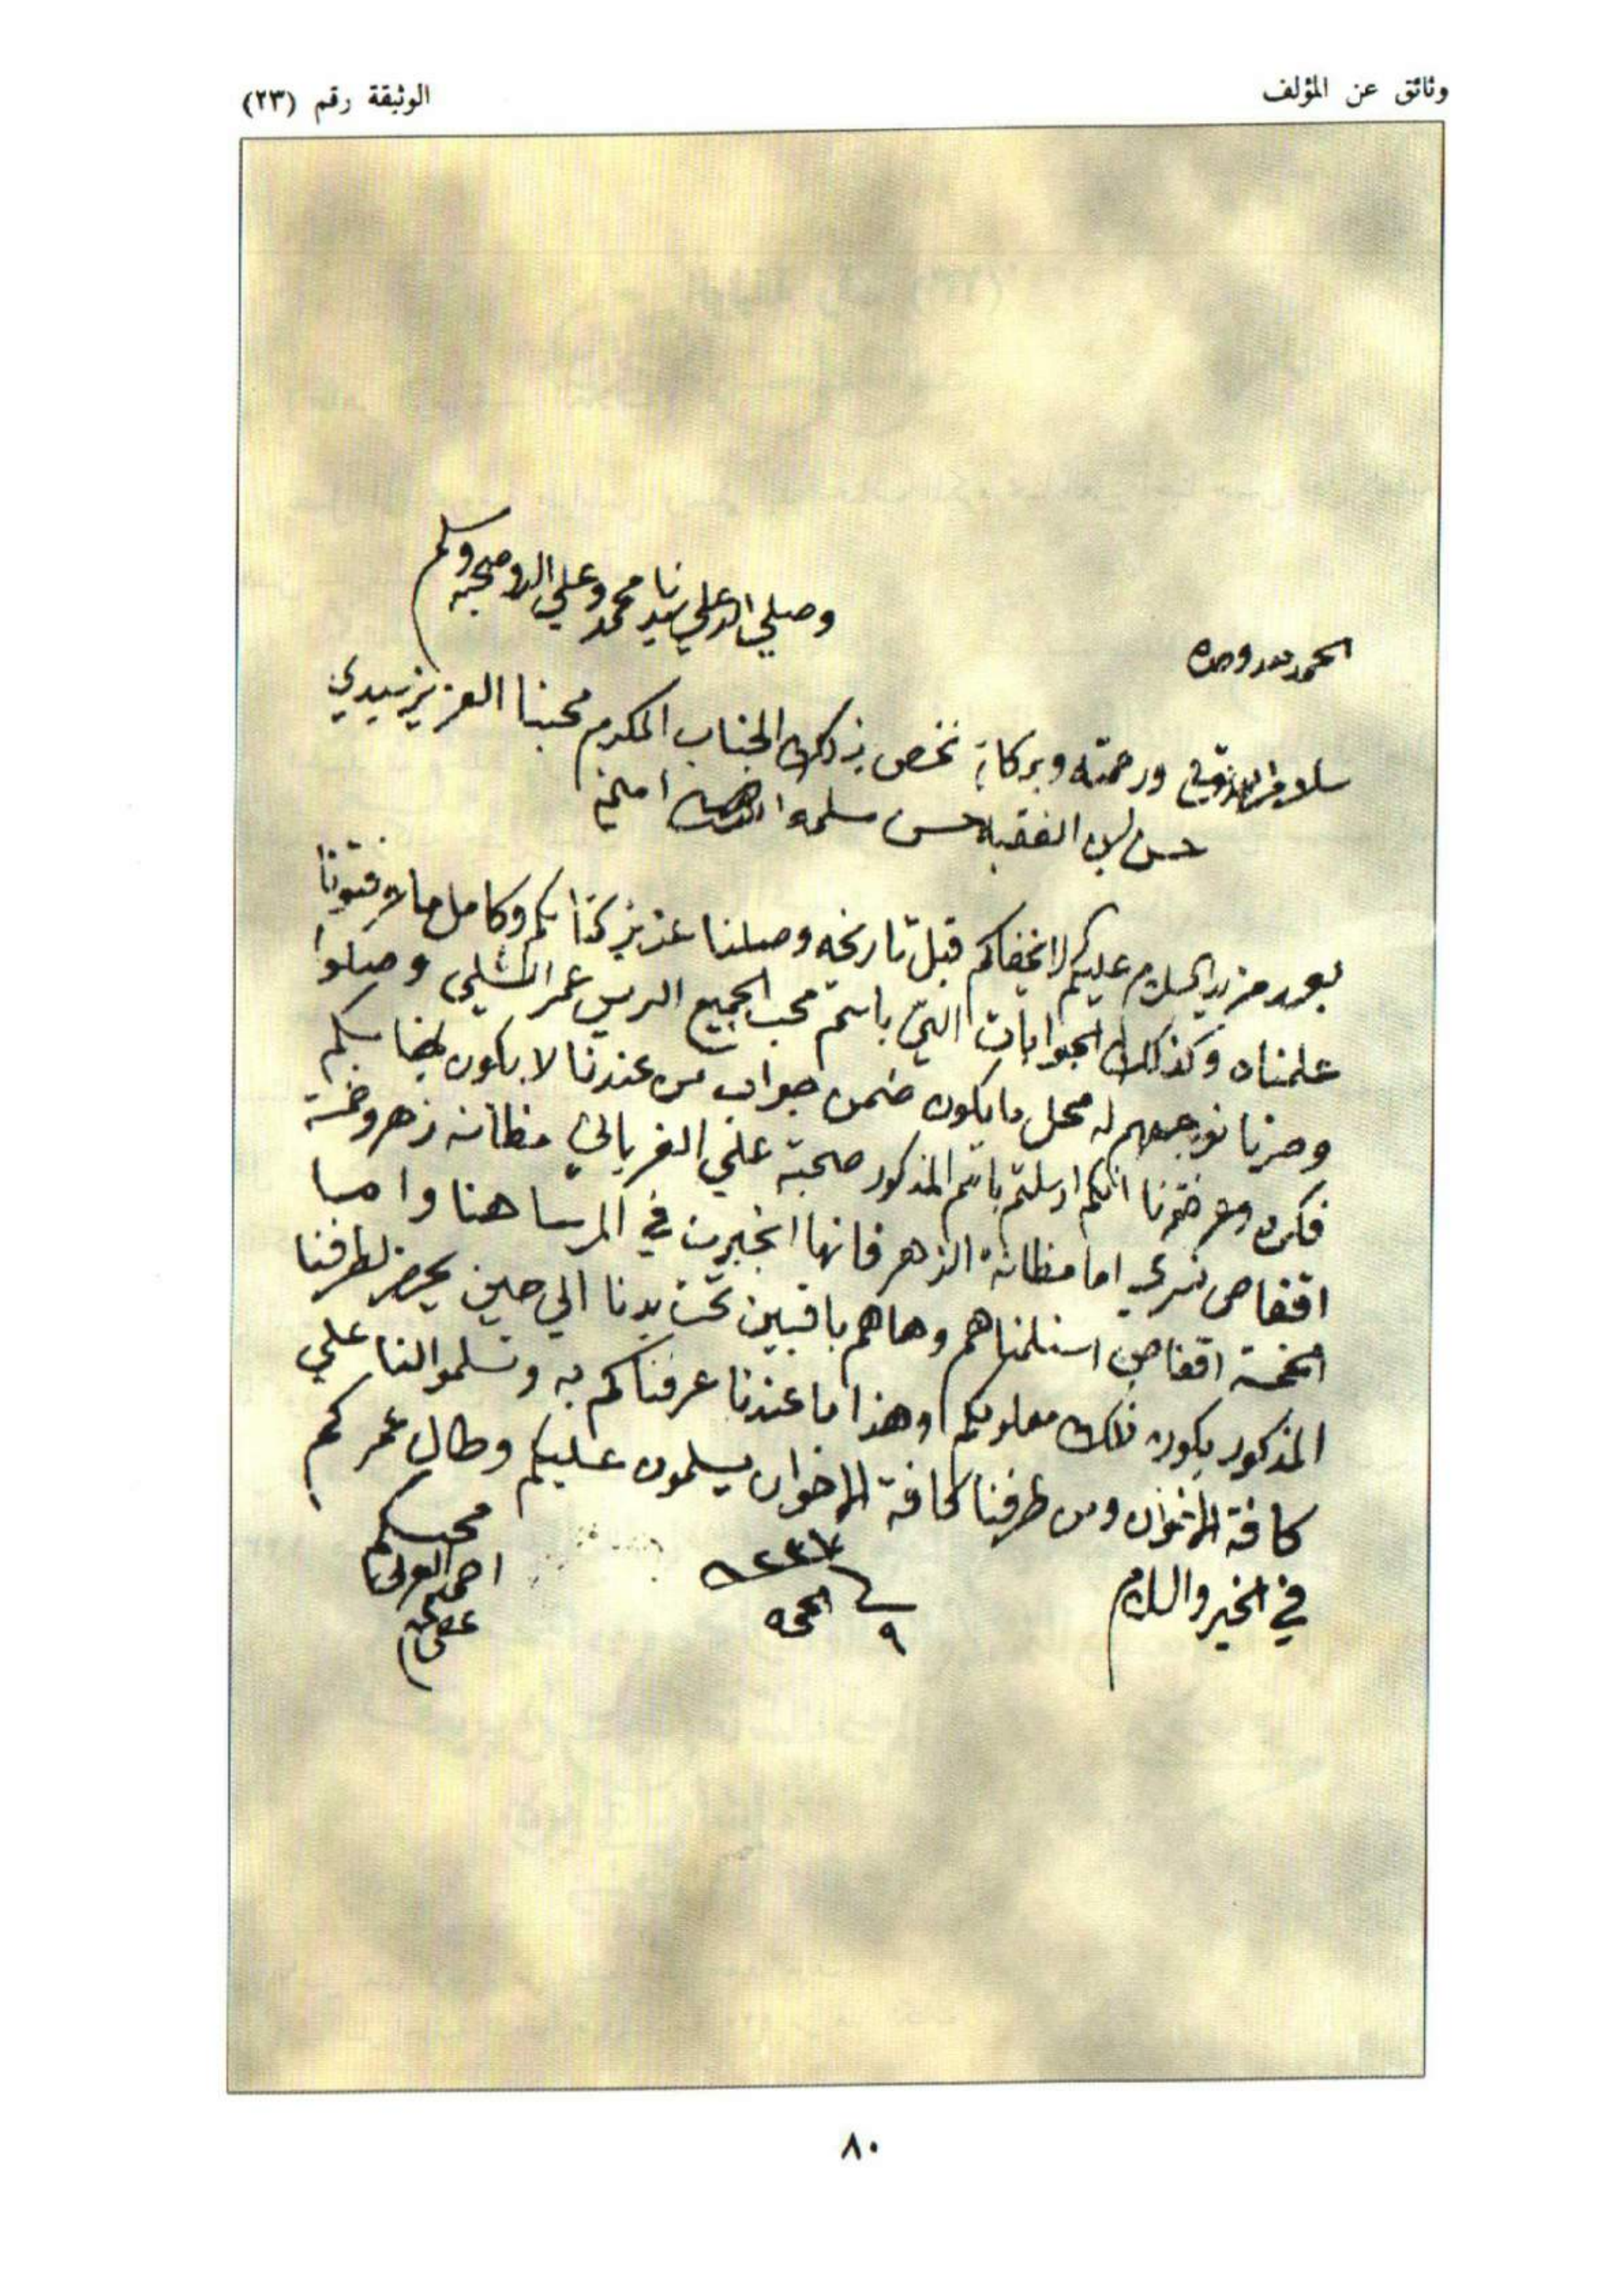 وثائق عن المؤلف
الوثيقة رقم (٢٣)
الحمد لله وحده
وصلي الله علي سيدنا محمد وعلي اله وصحبه وسلم
سلام ورحمته وبركاته نخص بذلك الجناب المكرم محبنا العزيز سيدي
حسن الفقيه حسن سلمه الله امين
بعد مزيد السلام عليكم لا يخفاكم قبل تاريخه وصلنا عزيز كتابكم وكامل ما عرفتونا
علمناه وكذلك الجوابات التي باسم محب الجميع الريس عمر الشلي وصلوا
وصرنا نوجهم له محل ما يكون ضمن جواب من عندنا لا يكون
فكره وعرفتونا انكم ارسلتم باسم المذكور صحبة علي الغرياني مظانة زهر وخمسة
اقفاص اما مظانة الزهر فانها في المرسا هنا واما
الخمسة اقفاص استلمناهم وهاهم باقيين تحت يدنا الي حين يحضر لطرفنا
المذكور يكون ذلك معلومكم وهذا ما عندنا عرفناكم به وتسلموا لنا علي
كافة الاخوان ومن طرفنا كافة الاخوان يسلمون عليكم وطال عمركم
في الخير والسلام
محبكم
احمد
عفي عنه
٨٠